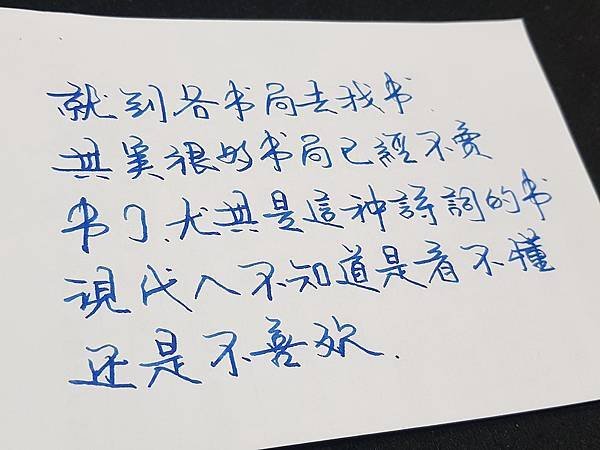 就到各书局去找书
其实很多书局已經不賣
书了.尤其是這种詩詞的书
現代人不知道是看不懂
还是不喜欢.